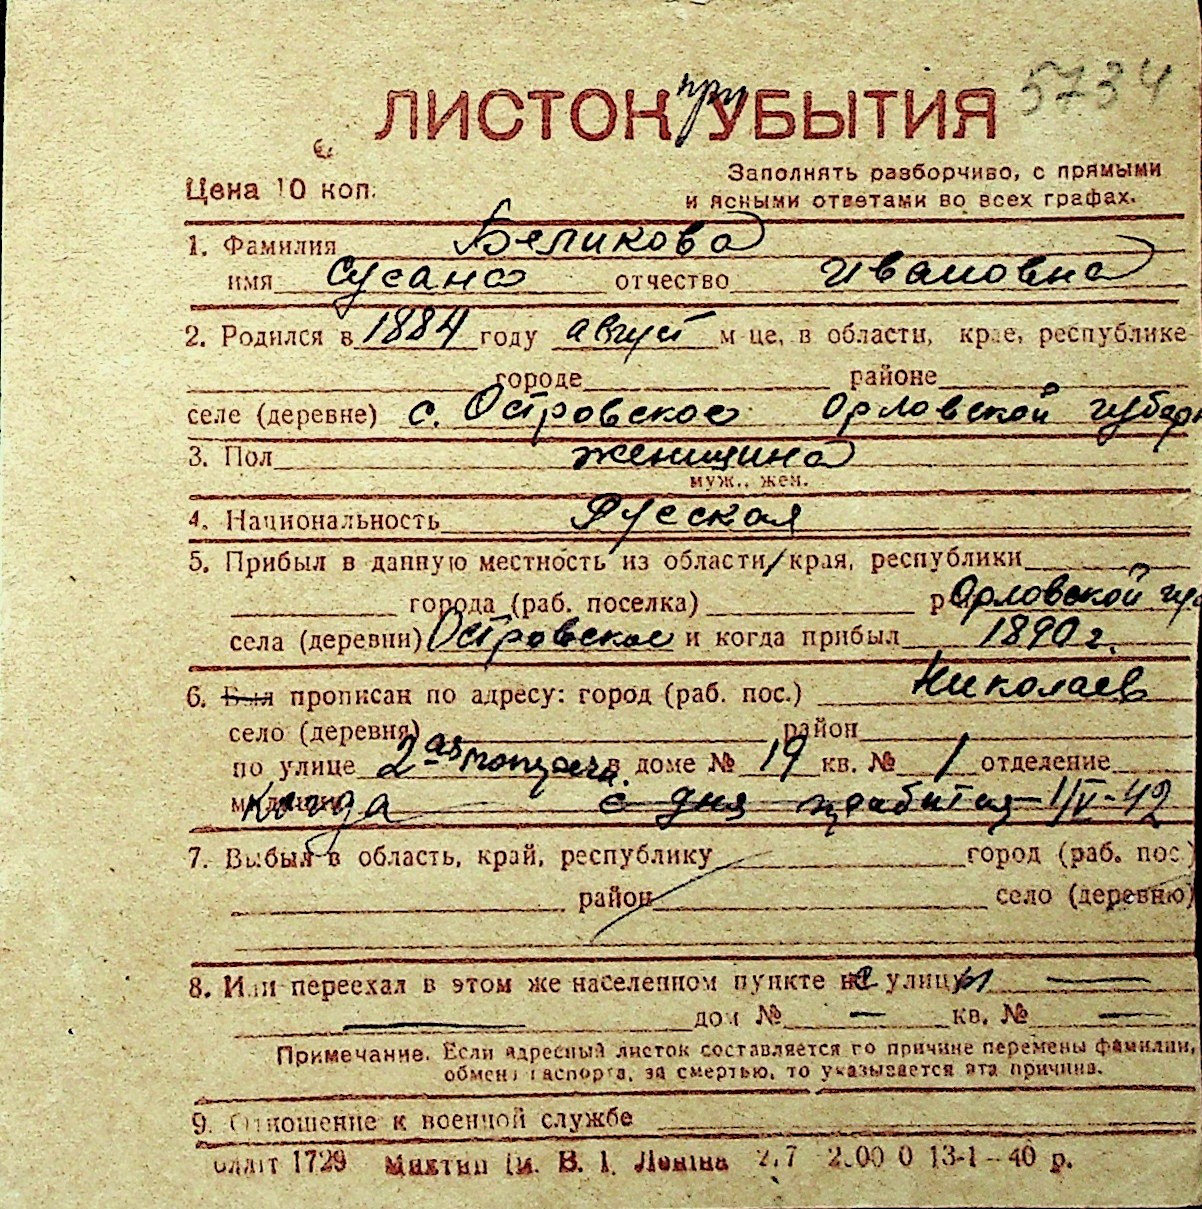 5734
при
ЛИСТОК УБЫТИЯ
Цена 10 коп.
Заполнять разборчиво, с прямыми
и ясными ответами во всех графах.
1. Фамилия Беликова
имя Сусана отчество Ивановна
2. Родился в 1884 году август м-це, в области, крае, республике
городе районе
селе (деревне) с. Островское Орловской губерн
3. Пол женщина
муж., жен.
4. Национальность Русская
5. Прибыл в данную местность из области/края, республики
города (раб. поселка) Орловской гу
села (деревни) Островское и когда прибыл 1890 г.
6. Был прописан по адресу: город (раб. пос.) Николаев
село (деревня) район
по улице 2ая в доме № 19 кв. № 1 отделение
Когда с дня прибытия 1/IV-42
7. Выбыл в область, край, республику город (раб. пос.)
район село (деревню)
8. Или переехал в этом же населенном пункте не улицы
дом № — кв. № —
Примечание. Если адресный листок составляется по причине перемены фамилии,
обмена паспорта, за смертью, то указывается эта причина.
9. Отношение к военной службе
1729 В. І. Леніна 2.00 0 13-1-40 р.